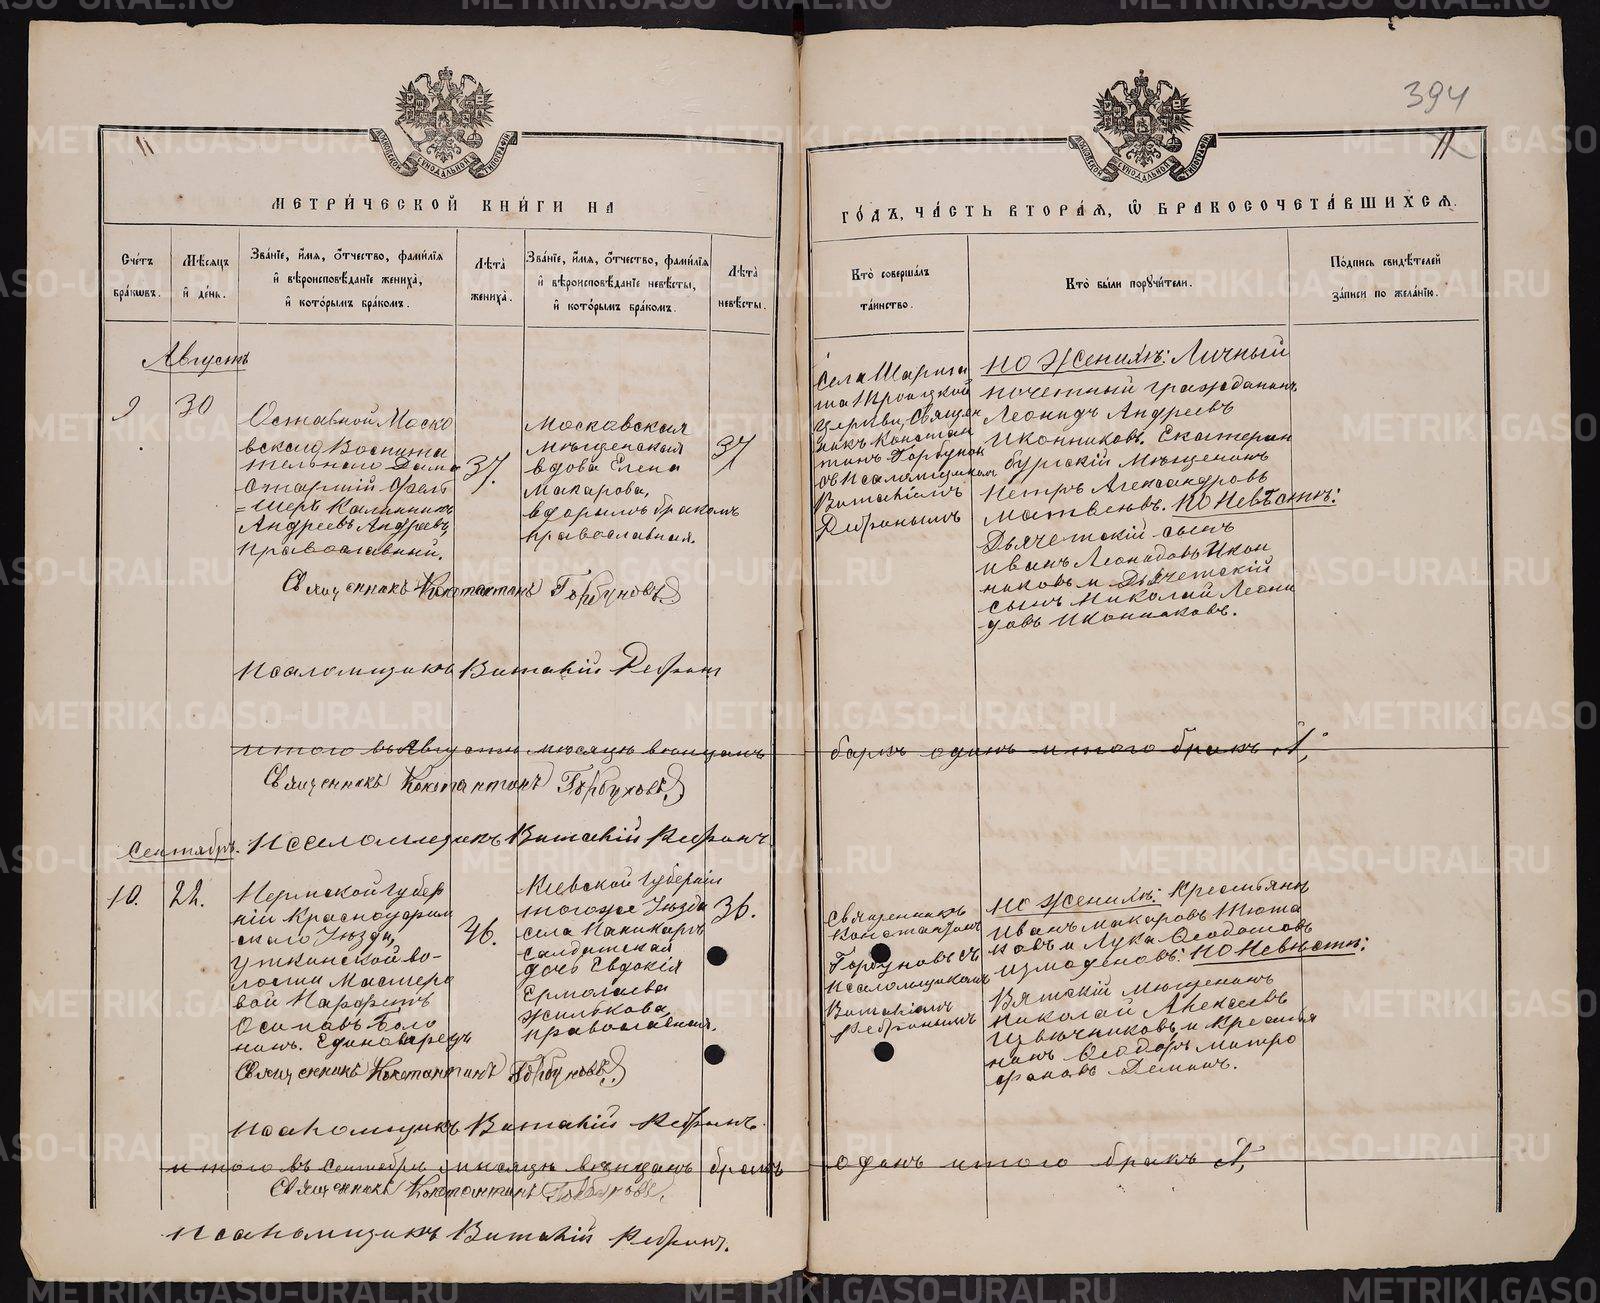 394
11
11
МЕТРИ́ЧЕСКОЙ КНИ́ГИ НА
ГО́ДЪ, ЧА́СТЬ ВТОРА́Я, Ѡ БРАКОСОЧЕТА́ВШИХСЯ.
Сче́тъ бра́ковъ.
Мѣ́сяцъ и де́нь.
Зва́нїе, и́мя, о́тчество, фами́лїя и вѣроисповѣ́данїе жениха̀, и кото́рымъ бра́комъ.
Лѣта̀ жениха̀.
Зва́нїе, и́мя, о́тчество, фами́лїя и вѣроисповѣ́данїе невѣ́сты, и кото́рымъ бра́комъ.
Лѣта̀ невѣ́сты.
Кто̀ соверша́лъ та́инство.
Кто̀ бы́ли поручи́тели.
По́дпись свидѣ́телей за́писи по жела́нїю.
Августъ
9
30
Оставной Моско
вскаго Воспита
тельнаго Дома
старшій Фелд
=шеръ Калинникъ
Андреевъ Андреевъ,
православный.
37.
московская
мѣщанская
вдова Елена
Макарова,
вторымъ бракомъ
православная.
37
села Шарта
та Троицкой
церкви Священ
никъ Констан
тинъ Горбунов
съ Псаломщикомъ
Виталіемъ
Ребринымъ
по Женихѣ: Личный
почетный гражданинъ
Леонидъ Андреевъ
Иконниковъ. Екатерин
бургскій Мѣщанинъ
Петръ Александровъ
Матвеевъ. по Невѣстѣ:
Дьячетскій сынъ
иванъ Леонидовъ Икон
никовъ и Дьячетскій
сынъ Николай Леони
довъ Иконниковъ.
Священникъ Константинъ Горбуновъ
Псаломщикъ Виталій Ребринъ
итого въ Августѣ мѣсяцѣ венчанъ
бракъ одинъ итого бракъ 1,
Священникъ Константинъ Горбуновъ
Сентябрь.
Псаломщикъ Виталій Ребринъ.
10.
22.
Пермской губер
ніи Красноуфим
скаго Уѣзда,
Уткинской во-
лости Мастеро
вой Парфенъ
Осиповъ
Единоверецъ
46.
Кіевской губерніи
тогоже Уѣзда
села
Салдатская
дочь Евдокія
Ермолаева
Жилькова,
православная.
36.
Священникъ
Константинъ
Горбуновъ съ
Псаломщикомъ
Виталіемъ
Ребринымъ
по Женихѣ: Крестьяне
Иванъ Макаровъ Тюта
ковъ и Лука Феодотовъ
Измоденовъ: по Невѣстѣ:
Вятскій мѣщанинъ
Николай Алексеевъ
и Крестья
нинъ Феодоръ Митро
фановъ Деминъ.
Священникъ Константинъ Горбуновъ
Псаломщикъ Виталій Ребринъ.
итого въ сентябрѣ мѣсяцѣ венчанъ бракъ
одинъ итого бракъ 1,
Священникъ Константинъ Горбуновъ.
Псаломщикъ Виталій Ребринъ.